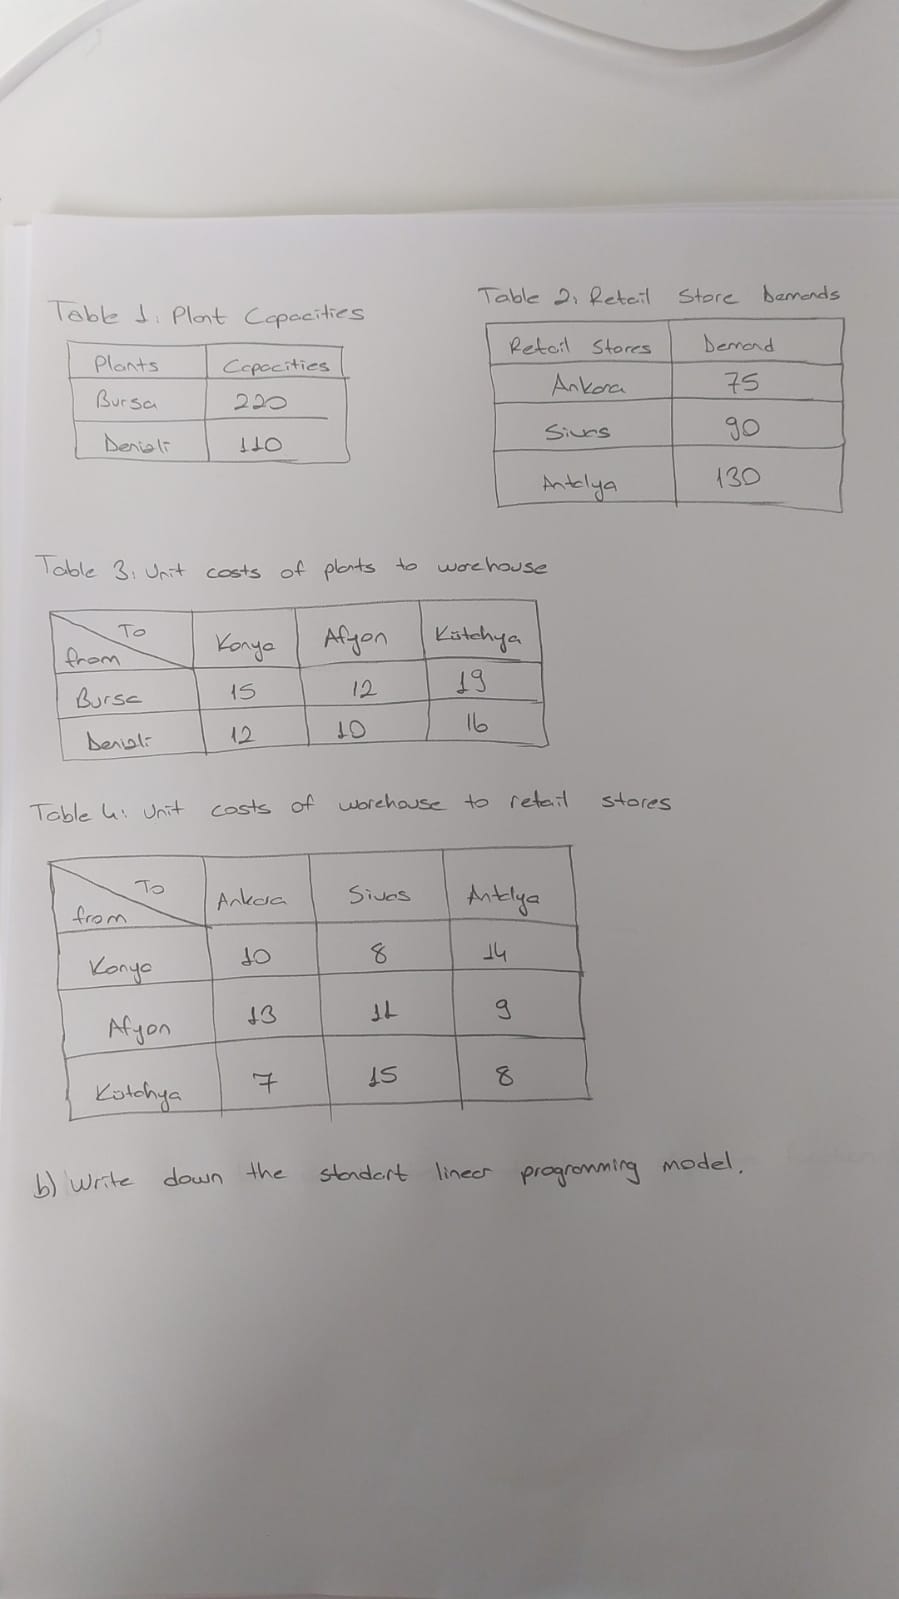 Table 1: Plant Capacities
Plants Capacities
Bursa 220
Denizli 110
Table 2: Retail Store Demands
Retail Stores Demand
Ankara 75
Sivas 90
Antalya 130
Table 3: Unit costs of plants to warehouse
To
from Konya Afyon Kütahya
Bursa 15 12 19
Denizli 12 10 16
Table 4: Unit costs of warehouse to retail stores
To
from Ankara Sivas Antalya
Konya 10 8 14
Afyon 13 11 9
Kütahya 7 15 8
b) Write down the standart linear programming model.